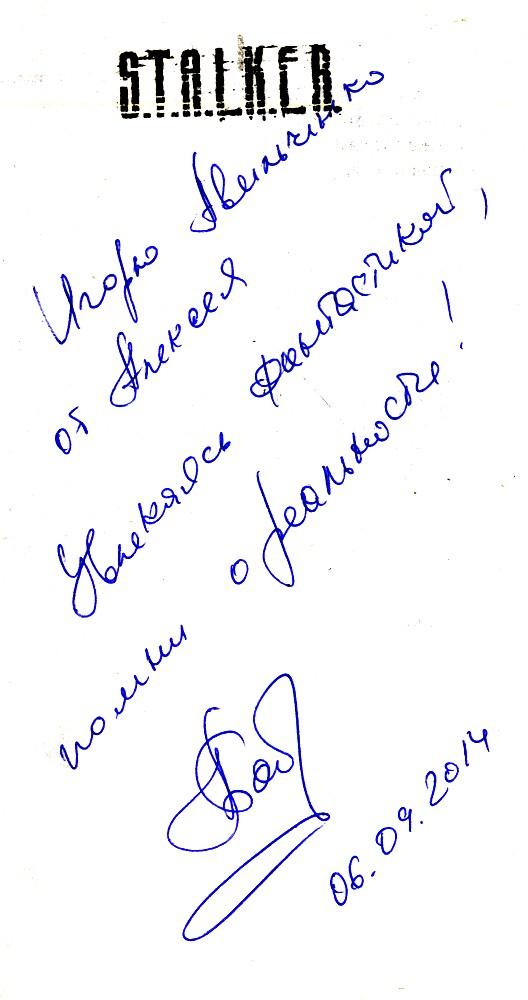 S.T.A.L.K.E.R.
Игорю
от Алексея
Увлекаясь фантастикой,
помни о реальности!
06.09.2014